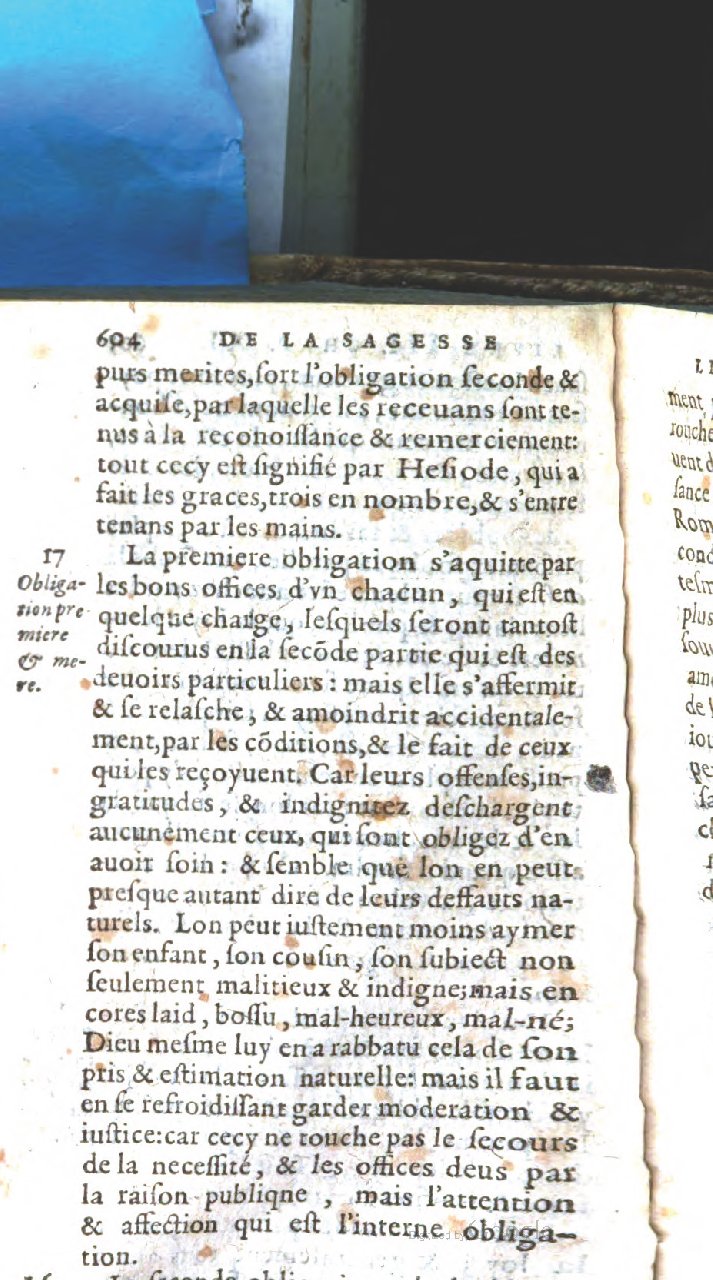 604 DE LA SAGESSE
purs merites, sort l'obligation seconde &
acquise, par laquelle les receuans sont te-
nus à la reconoissance & remerciement:
tout cecy est signifié par Hesiode, qui a
fait les graces, trois en nombre, & s'entre
tenans par les mains.
17
Obliga-
tion pre
miere
& me-
re.
La premiere obligation s'aquitte par
les bons offices d'vn chacun, qui est en
quelque charge, lesquels seront tantost
discourus en la secõde partie qui est des
deuoirs particuliers: mais elle s'affermit
& se relasche, & amoindrit accidentale-
ment, par les cõditions, & le fait de ceux
qui les reçoyuent. Car leurs offenses, in-
gratitudes, & indignitez deschargent
aucunement ceux, qui sont obligez d'en
auoir soin: & semble que lon en peut
presque autant dire de leurs deffauts na-
turels. Lon peut iustement moins aymer
son enfant, son cousin, son subiect non
seulement malitieux & indigne; mais en
cores laid, bossu, mal-heureux, mal-né;
Dieu mesme luy en a rabbatu cela de son
pris & estimation naturelle: mais il faut
en se refroidissant garder moderation &
iustice: car cecy ne touche pas le secours
de la necessité, & les offices deus par
la raison publiqne, mais l'attention
& affection qui est l'interne obliga-
tion.